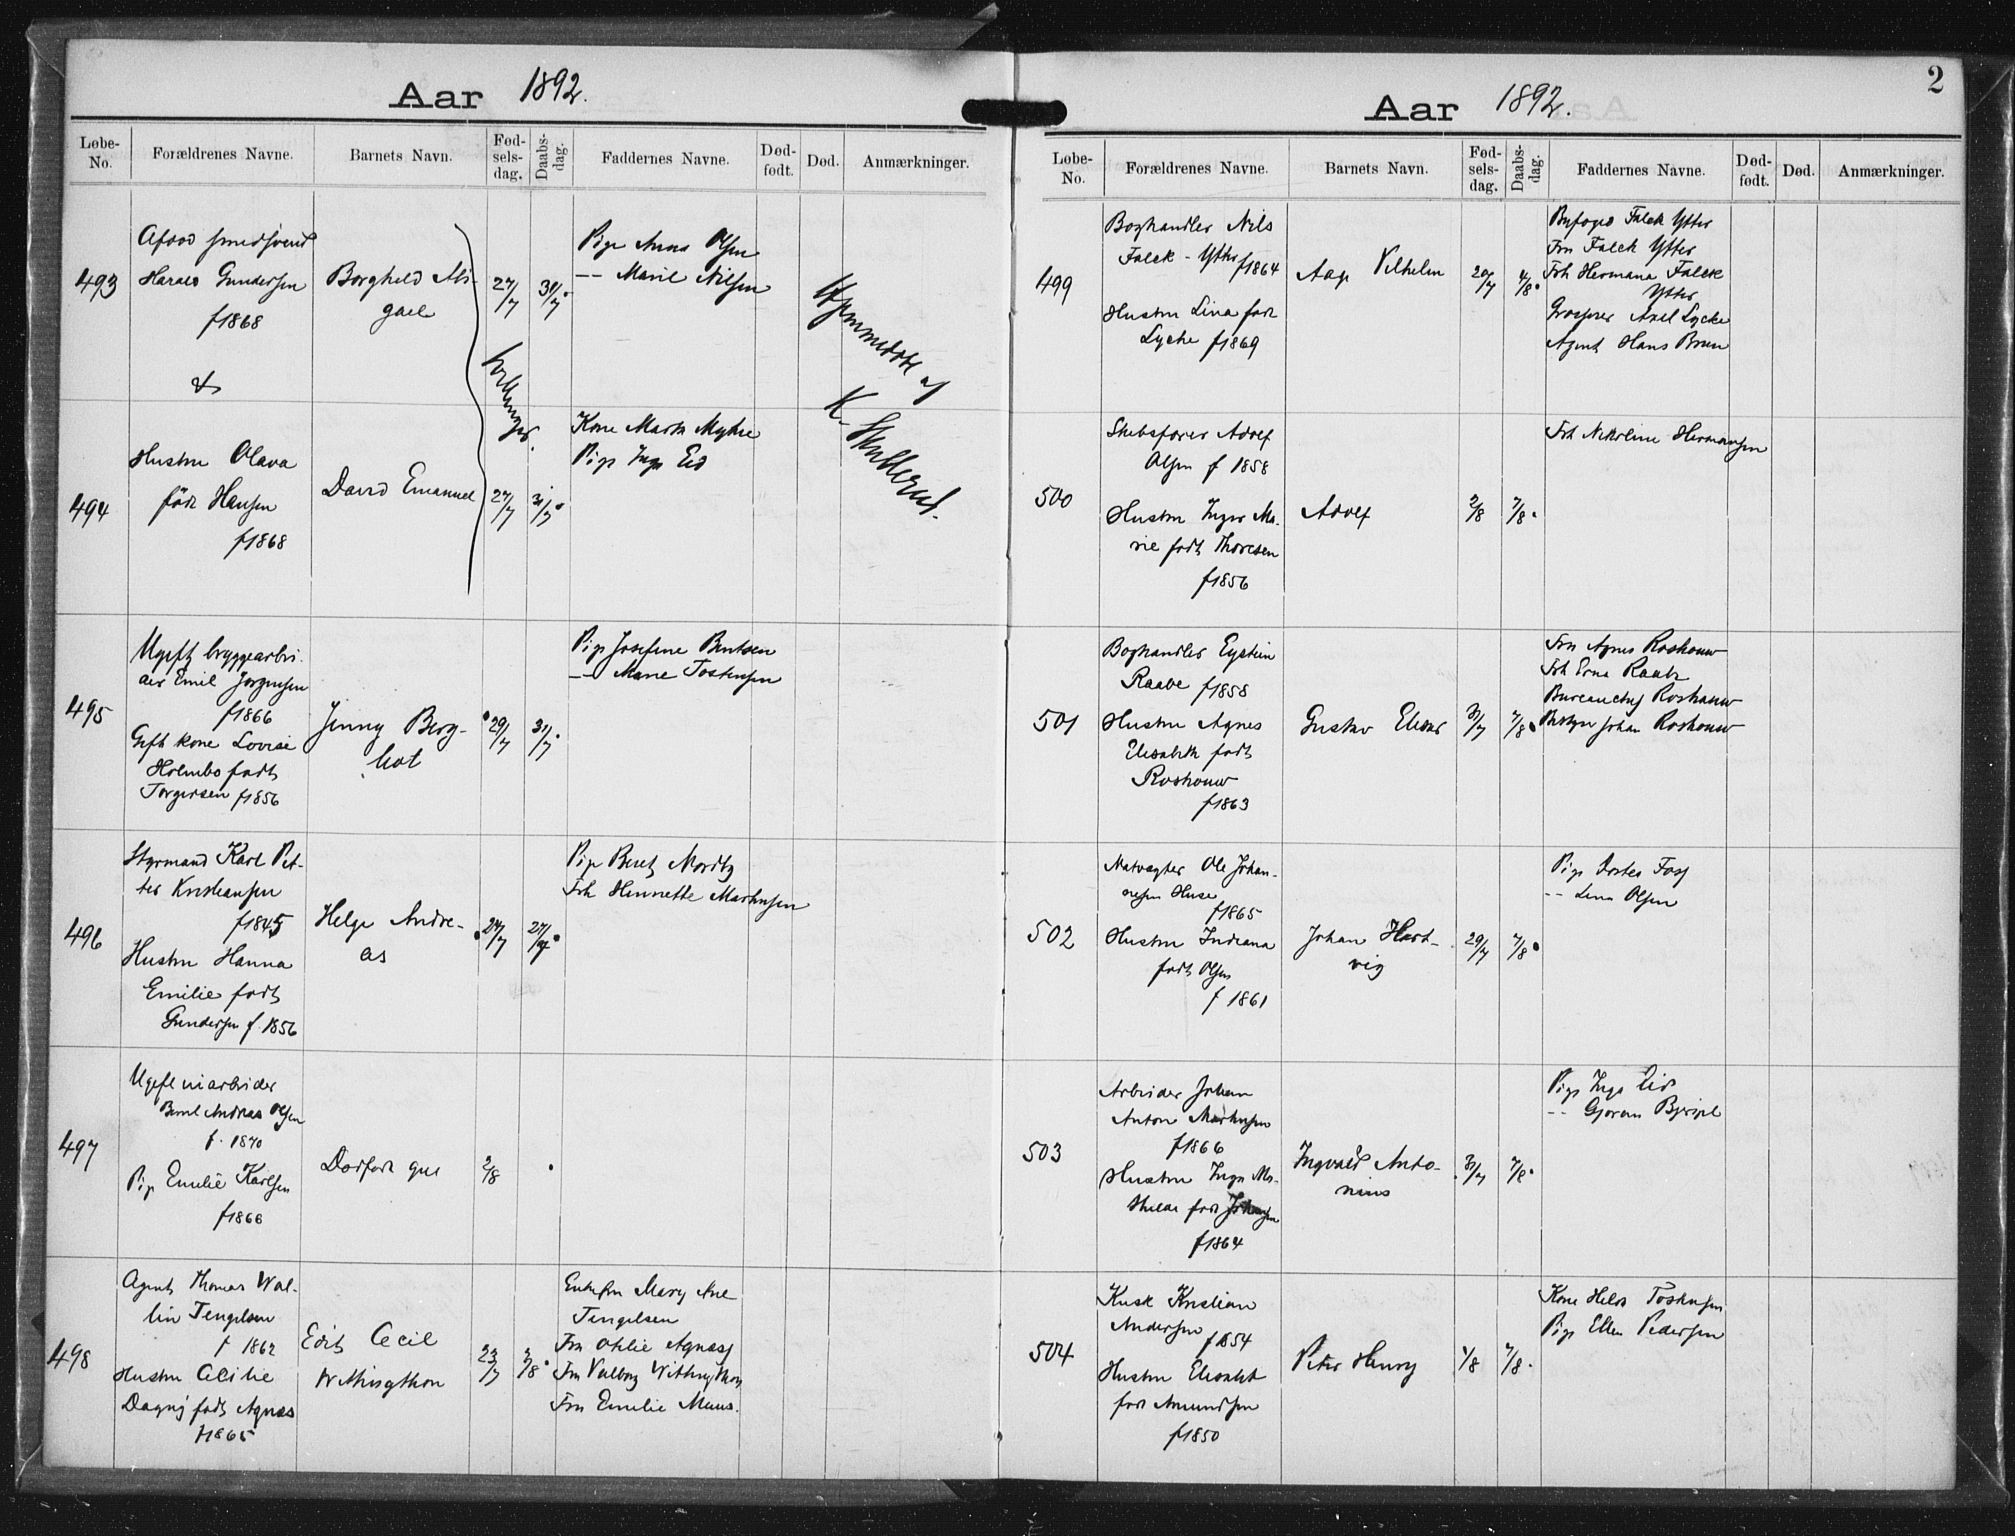 Aar 1892.
Løbe-No. Forældrenes Navne. Barnets Navn. Fød-sels-dag. Daabs-dag. Faddernes Navne. Død-født. Død. Anmærkninger.
493
Harald Gundersen
f1868
&
Borghild Abi-
gael
27/7 31/7
Pige Anna Olsen
-- Marie Nilsen
Tvillinger.
Hjemmedøbt af
K. Skullerud.
494
Hustru Olava
født Hansen
f1868
David Emanuel
27/7 31/7
Kone Marta Myhre
Pige Inga Eid
495
Ugift bryggearbei-
der Emil Jørgensen
f1866
Gift kone Lovise
Holmbo født
Torgersen f1856
Jenny Borg-
hot
29/7 31/7
Pige Josefine Bentsen
-- Marie Tostensen
496
Styrmand Karl Pet-
ter Kristiansen
f1845
Hustru Hanna
Emilie født
Gundersen f. 1856
Helge Andre-
as
27/7
Pige Beret Moritz
Frk Henriette Martinsen
497
Bernt Andreas Olsen
f. 1870
Pige Emilie Karlsen
f1866
Dødfødt gut
2/8
498
Agent Thomas Wal-
lin Tengelsen
f 1862
Hustru Cecilie
Dagny født Agnæs
f1865
Edit Cecil
Withingthon
23/7 3/8
Enkefru Mary Ane
Tengelsen
Fru Otilie Agnæss
Fru Valborg Withingthon
Fru Emilie Muus.
2
Aar 1892.
Løbe-No. Forældrenes Navne. Barnets Navn. Fød-sels-dag. Daabs-dag. Faddernes Navne. Død-født. Død. Anmærkninger.
499
Boghandler Nils
Falck-Ytter f1864
Hustru Lina født
Lycke f1869
Aage Vilhelm
20/7 4/8
Falck Ytter
Fru Falck Ytter
Frk Hermana Falck
Ytter
Grosserer Axel Lycke
Agent Hans Bruun
500
Skibsfører Adolf
Olsen f 1858
Hustru Inger Ma-
rie født Thoresen
f1856
Adolf
2/8 7/8
Frk Nikoline Hermansen
501
Boghandler Eystein
Raabe f1858
Hustru Agnes
Elisabeth født
Roshauw
f1863
Gustav Elias
31/7 7/8
Fru Agnes Roshauw
Frk Erna Raabe
Bureauchef Roshauw
Bestyrer Johan Roshauw
502
Natvægter Ole Johan-
nesen Huse
f1865
Hustru Indiana
født Olsen
f 1861
Johan Hart-
vig
29/7 7/8
-- Lina Olsen
503
Arbeider Johan
Anton Martinsen
f1866
Hustru Inga Ma-
thilde født Johansen
f1864
Ingvald Anto-
nius
31/7 7/8
Pige Inga Eid
504
Kusk Kristian
Andersen f1854
Hustru Elisabet
født Amundsen
f1850
Peter Henry
1/8 7/8
Kone Hilda Tostensen
Pige Ellen Pedersen